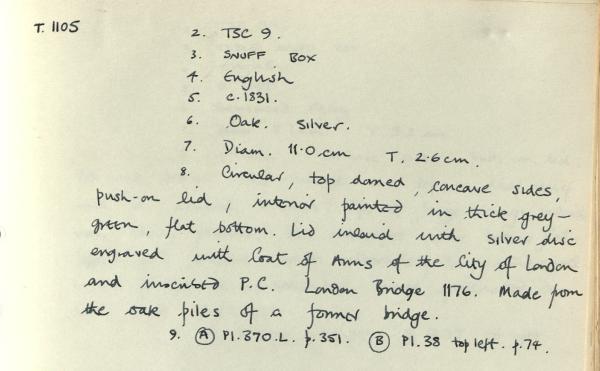 T. 1105
2. TSC 9.
3. SNUFF BOX
4. English
5. c.1831.
6. Oak. Silver.
7. Diam. 11.0 cm T. 2.6 cm.
8. Circular, top domed, concave sides,
push-on lid, interior painted in thick grey-
green, flat bottom. Lid inlaid with silver disc
engraved with Coat of Arms of the City of London
and inscribed P.C. London Bridge 1176. Made from
the oak piles of a former bridge.
9. A Pl. 370. L. p. 351. B Pl. 38 top left. p. 74.